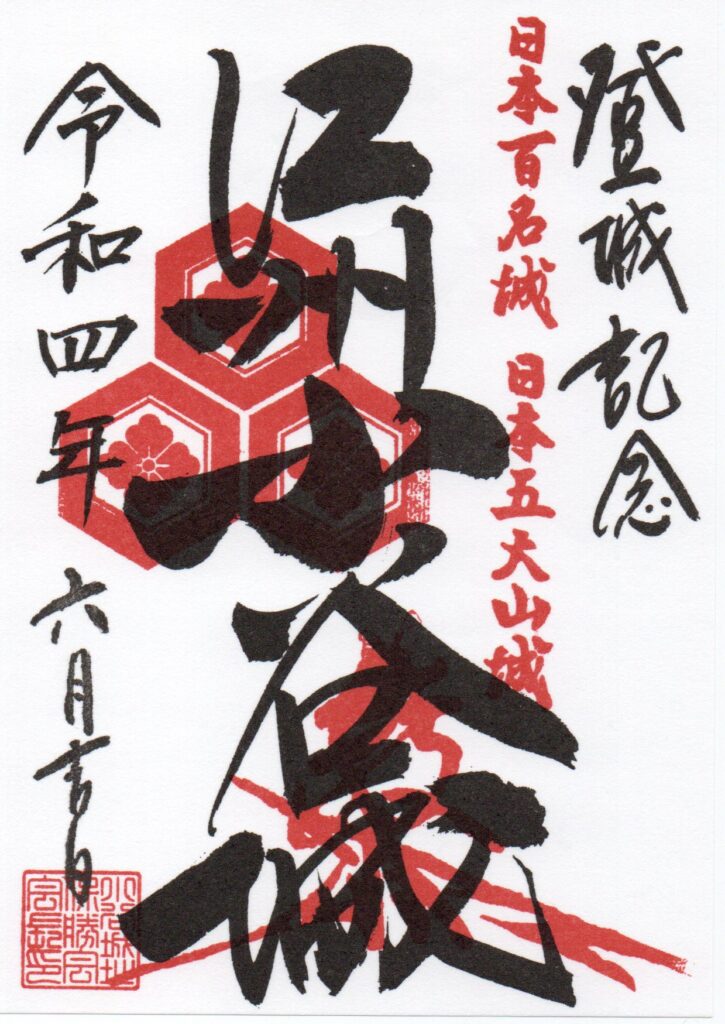 登城記念
日本百名城 日本五大山城
江州小谷城
令和四年
六月吉日